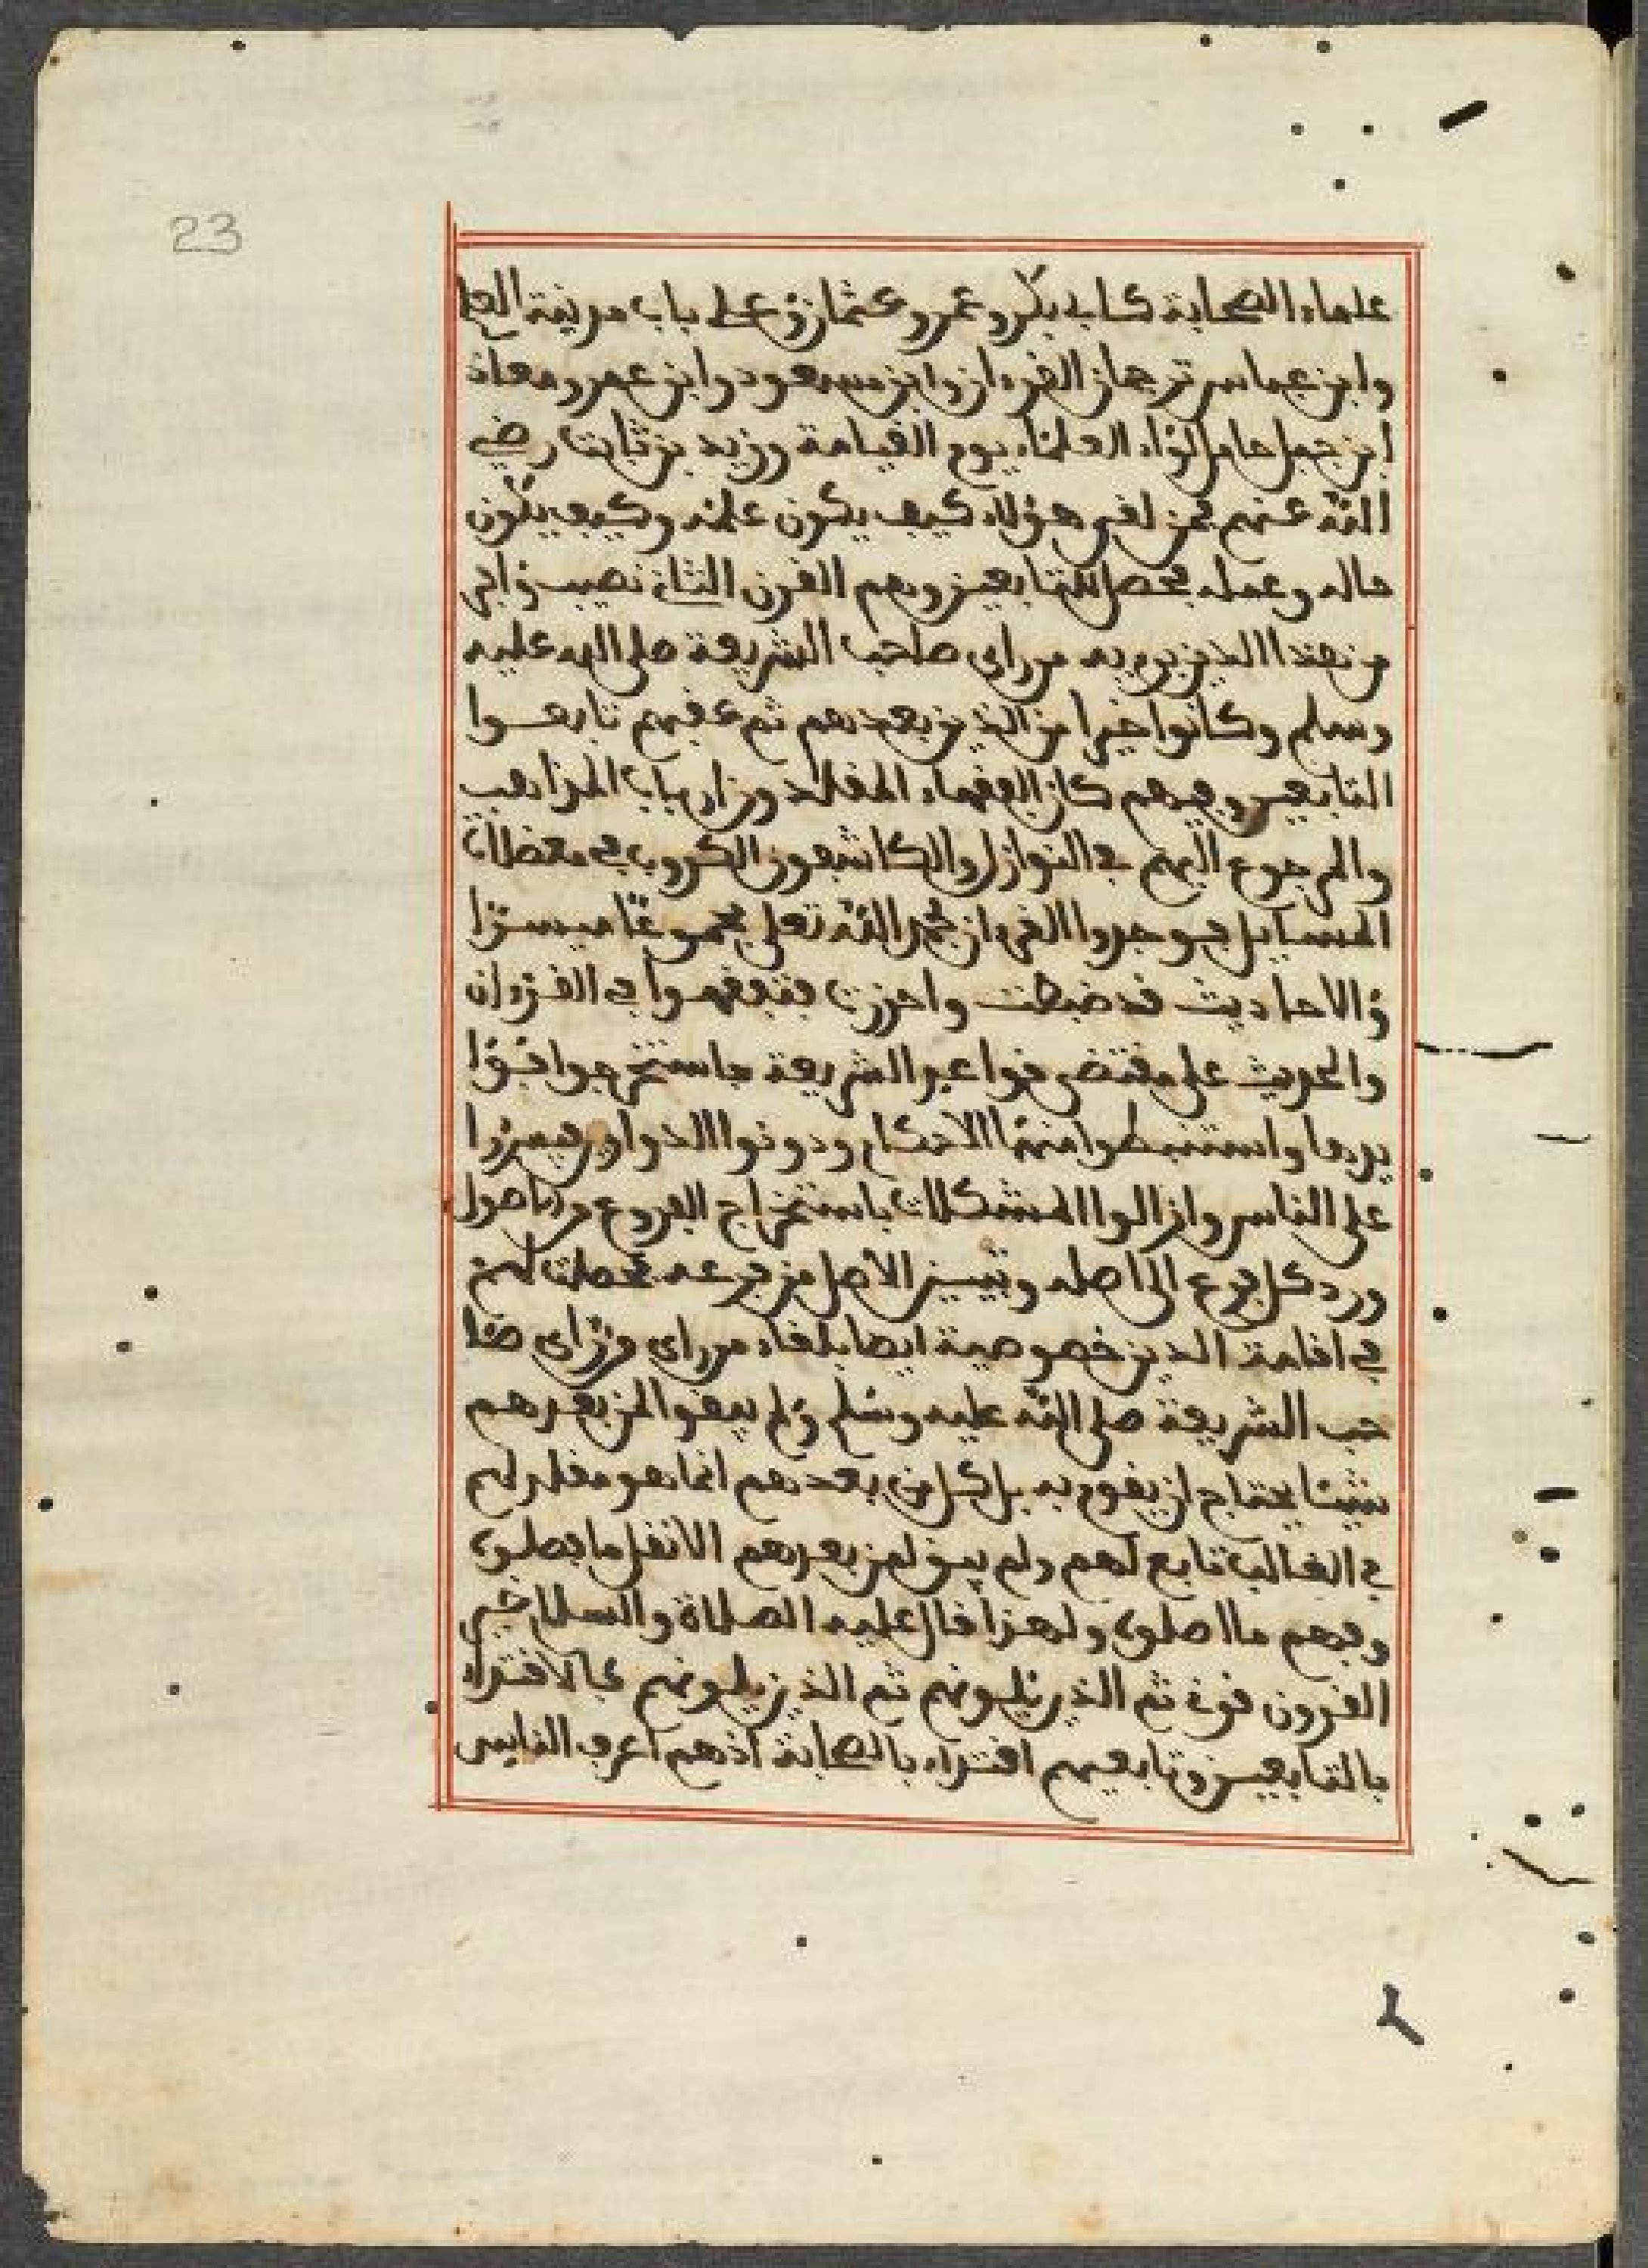 23
علماء الصحابة كابي بكر وعمر وعثمان وعلى باب مدينة العلم
وابن عباس ترجمان القرءان وابن مسعود وابن عمر ومعاذ
ابن جبل حامل لواء العلماء يوم القيامة وزيد بن ثابت رضي
الله عنهم فمن لقي هؤلاء كيف يكون علمه وكيف يكون
حاله وعمله فحصل للتابعين وهم القرن الثاني نصيب وافر
من هذا الدين برؤية من راى صاحب الشريعة صلى الله عليه
وسلم وكانوا خيرا من الذين بعدهم ثم عقبهم تابعوا
التابعين وفيهم كان الفقهاء المقلدون ارباب المذاهب
والمرجوع اليهم في النوازل والكاشفون الكروب في معضلات
المسايل فوجدوا القرءان بحمد الله تعلى مجموعا ميسرا
والاحاديث قد ضبطت واحرزت فتفقهوا في القرءان
والحديث على مقتضى قواعد الشريعة فاستخرجوا فوا
يدها واستنبطوا منها الاحكام ودونوا الدواوين ويسروا
على الناس وازالوا المشكلات باستخراج الفروع من الاصول
ورد كل فرع الى اصله وتبيين الاصل من فرعه فحصلت لهم
في اقامة الدين خصوصية ايضا بلقاء من راى من راى صا
حب الشريعة صلى الله عليه وسلم ولم يبقوا لمن بعدهم
شيئا يحتاج ان يقوم به بل كل من بعدهم انما هو مقلد لهم
في الغالب تابع لهم ولم يبق لمن بعدهم الا نقل ما فصلوا
وفهم ما اصلوا ولهذا قال عليه الصلاة والسلام خير
القرون قرني ثم الذين يلونهم ثم الذين يلونهم فالاقتداء
بالتابعين وتابعيهم اقتداء بالصحابة اذ هم اعرف الناس